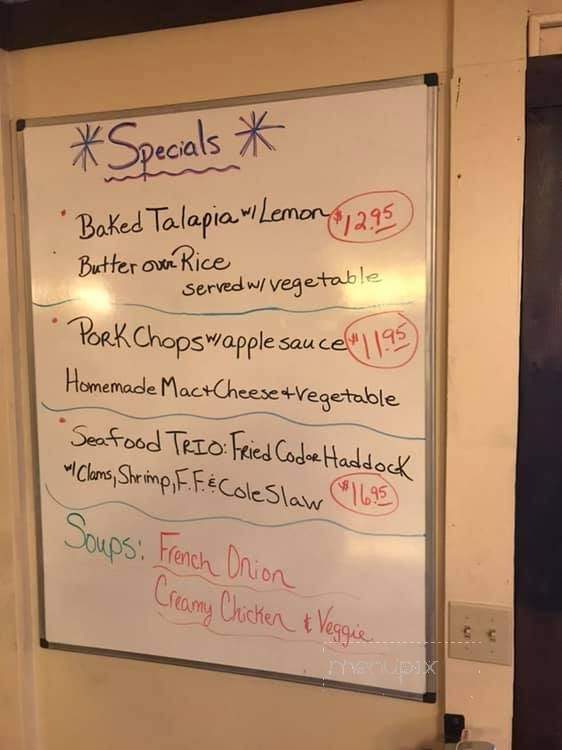 * Specials *
• Baked Talapia w/ Lemon $12.95
Butter over Rice
served w/ vegetable
• Pork Chops w/ apple sauce $11.95
Homemade Mac + Cheese + Vegetable
• Seafood TRIO: Fried Cod or Haddock
w/ Clams, Shrimp, F.F. & Cole Slaw $16.95
Soups: French Onion
Creamy Chicken & Veggie
menupix